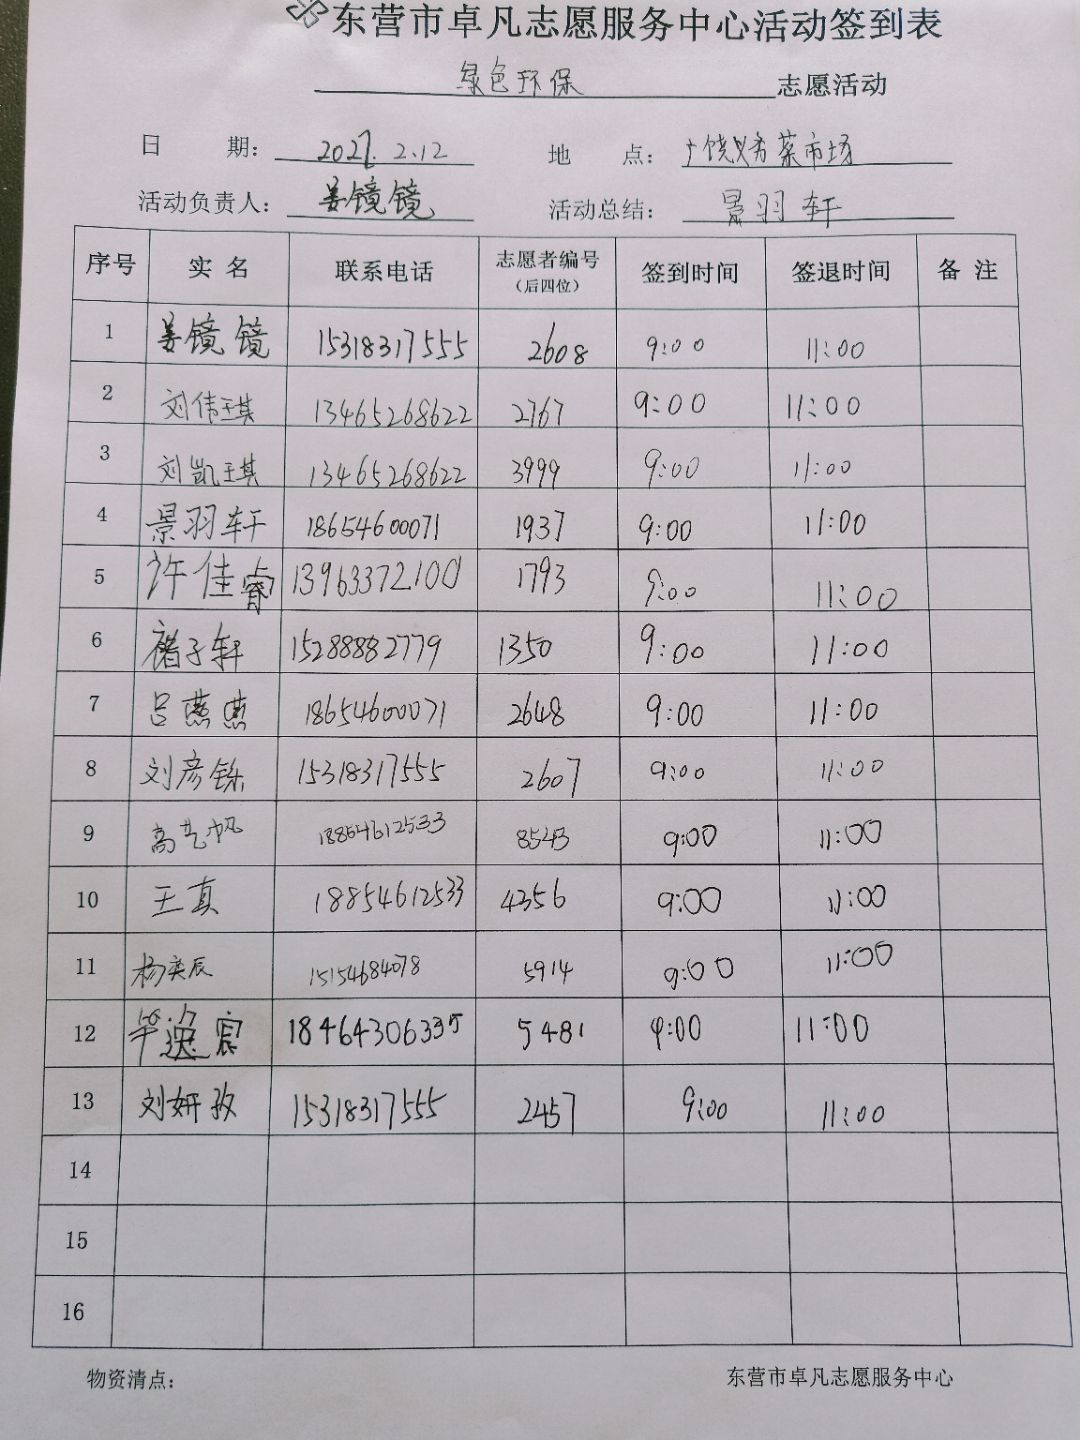 东营市卓凡志愿服务中心活动签到表
绿色环保 志愿活动
日 期： 2022.2.12 地 点： 广饶义务菜市场
活动负责人： 姜镜镜 活动总结： 景羽轩
序号 实名 联系电话 志愿者编号（后四位） 签到时间 签退时间 备注
1 姜镜镜 15318317555 2608 9:00 11:00
2 刘伟琪 13465268622 2767 9:00 11:00
3 刘凯琪 13465268622 3999 9:00 11:00
4 景羽轩 18654600071 1937 9:00 11:00
5 许佳睿 13963372100 1793 9:00 11:00
6 褚子轩 15288882779 1350 9:00 11:00
7 吕燕燕 18654600071 2648 9:00 11:00
8 刘彦铄 15318317555 2607 9:00 11:00
9 高艺帆 18854612533 8543 9:00 11:00
10 王真 18854612533 4356 9:00 11:00
11 杨奕辰 15154684078 5914 9:00 11:00
12 毕逸宸 18464306335 5481 9:00 11:00
13 刘妍孜 15318317555 2457 9:00 11:00
14
15
16
物资清点： 东营市卓凡志愿服务中心